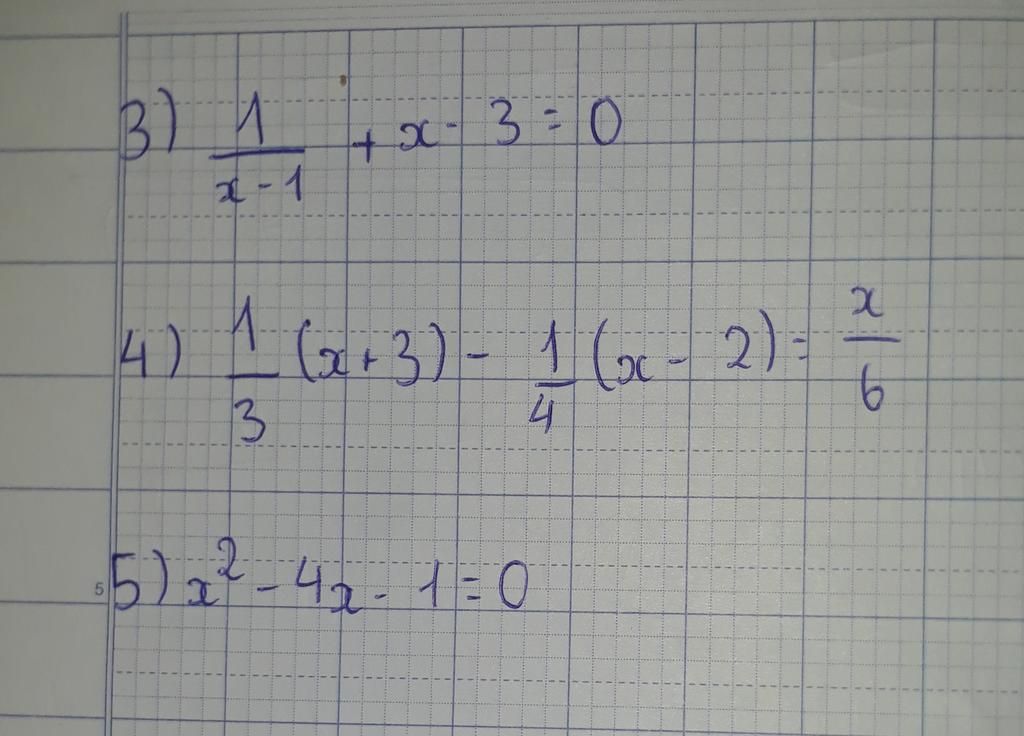 3) 1/(x-1) + x - 3 = 0
4) 1/3 (x+3) - 1/4 (x - 2) = x/6
5) x² - 4x - 1 = 0